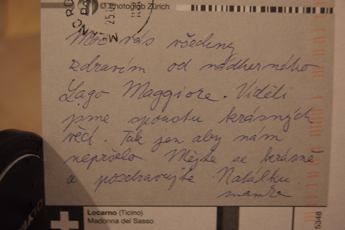 © Photoglob Zürich
25.
Moc vás všechny
zdravím od nádherného
Lago Maggiore. Viděli
jsme spoustu krásných
věcí. Tak jen aby nám
nepršelo. Mějte se krásně
a pozdravujte Natálku
mamka
Locarno (Ticino)
Madonna del Sasso
5346